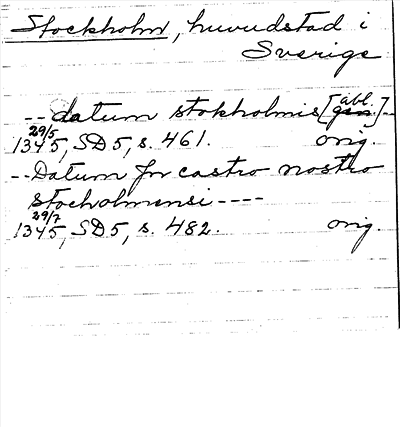 Stockholm, huvudstad i
Sverige
-- datum stokholmis [abl.] --
29/5
1345, SD5, s. 461. orig.
-- Datum in castro nostro
stocholmensi ----
29/7
1345, SD5, s. 482. orig.